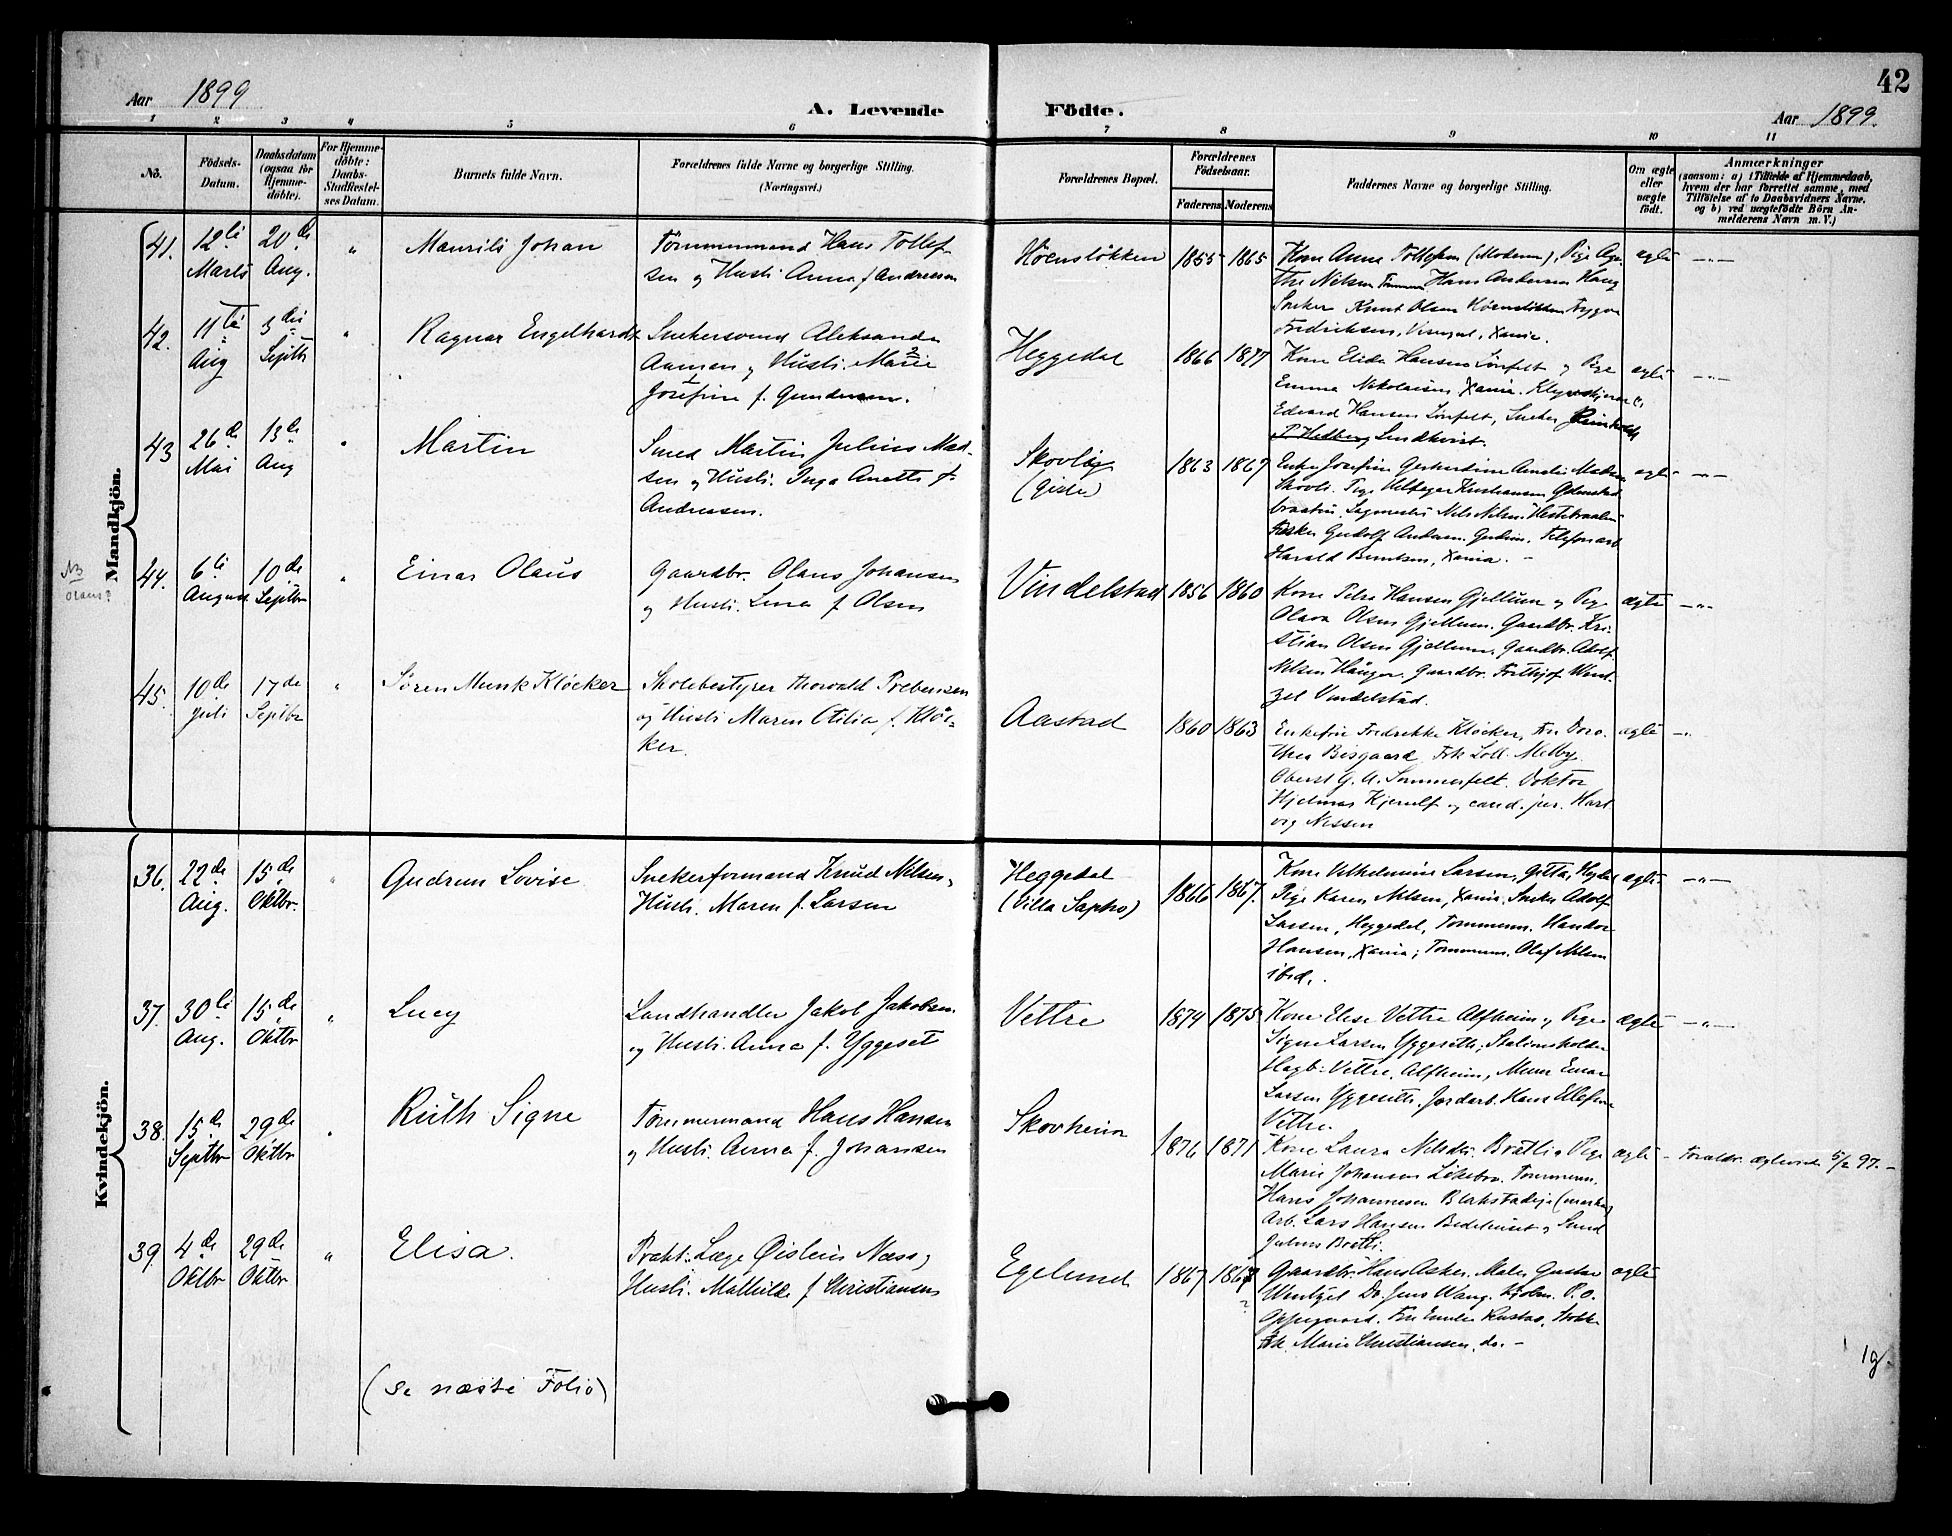 42
Aar 1899
A. Levende Födte.
Aar 1899.
1 2 3 4 5 6 7 8 9 10 11
No.
Födsels-
Datum.
Daabsdatum
(ogsaa for
Hjemme-
döbte).
For Hjemme-
döbte:
Daabs-
Stadfæstel-
ses Datum.
Barnets fulde Navn.
Forældrenes fulde Navne og borgerlige Stilling.
(Næringsvei.)
Forældrenes Bopæl.
Forældrenes
Födselsaar.
Faderens Moderens
Faddernes Navne og borgerlige Stilling.
Om ægte
eller
uægte
født.
Anmærkninger
(saasom: a) i Tilfælde af Hjemmedaab,
hvem der har forrettet samme, med
Tilföielse af to Daabsvidners Navne.
og b) ved uægtefödte Börn An-
melderens Navn m. V.)
Mandkjön.
41. 12te Marts 20de Aug. " Mauritz Johan
Tømmermand Hans Tollef-
sen og Hustr. Anna f. Andreasen
Høensløkken 1855 1865
Kone Anna Tollefsen (Moderen), Pige Aga-
the Nilsen Tømmerm Hans Andersen Haug
Sneker Knut Olsen Høensløkken Trygve
Fredriksen, Xania.
ægte -"-
42. 11te Aug 3die Septbr " Ragnar Engelhardt
Snekersvend Aleksander
Aaman og Hustr. Marie
Josefine f. Gundersen.
Heggedal 1866 1877
Kone Elida Hansen Lønfelt og Pige
Emma Nikolaisen, Xania.
Edvard Hansen Lønfelt, Sneker Reinholdt
P. Hedberg Lindkvist.
ægte -"-
43 26de Mai 13de Aug " Martin
Smed Martin Julius Mad-
sen og Hustr. Inga Anette f.
Andreasen.
Skovlig
(Gisle) 1863 1867
Enke Josefine Gerhardine Amalie Madsen
Skovli. Pige Kristiansen
braaten, Nils Nilsen Hestebraaten
Gudolf Andersen Telefonarb
Harald Berntsen, Xania. -
ægte -"-
NB
Olaus?
44. 6te August 10de Septbr " Einar Olaus
Gaardbr. Olaus Johansen
og Hustr. Lina f. Olsen
Vindelstad 1856 1860
Kone Petra Hansen Gjellum og Pige
Olava Olsen Gjellum. Gaardbr. Kri-
stian Olsen Gjellum, Gaardbr. Adolf
Nilsen Hånger Gaardbr. Frithjof Went-
zel Vindelstad.
ægte -"-
45. 10de Juli 17de Septbr " Søren Munk Kløcker
Skolebestyrer Thorvald Prebensen
og Hustr. Maren Otilia f. Kløc-
ker.
Aastad 1860 1863
Enkefru Fredrikke Kløcker, Fru Doro-
thea Bisgaard, Frk Loll. Melby
Oberst G. U. Sommerfelt. Doktor
Hjelmar Kjerulf og cand. jur. Hart-
vig Nissen
ægte -"-
Kvindekjön.
36. 22de Aug. 15de Oktbr. " Gudrun Lovise
Snekerformand Knud Nilsen,
Hustr. Maren f. Larsen
Heggedal
(Villa Sapho) 1866 1867.
Kone Vilhelmine Larsen, Gitta,
Pige Karen Nilsen, Xania. Sneker Adolf
Larsen, Heggedal, Tømmerm. Handor
Hansen, Xania; Tømmerm. Olaf Nilsen
ibid.
ægte -"-
37. 30te Aug. 15de Oktbr " Lucy
Landhandler Jakob Jakobsen
og Hustr. Anna f. Yggeset
Vettre 1874 1875
Kone Elise Vettre Alfheim og Pige
Signe Larsen Yggeseth; Stationsholder
Hagb. Vettre, Alfheim, Murer Einar
Larsen Yggeseth, Jordarb. Hans Ellefsen
Vettre.
ægte -"-
38. 15de Septbr 29de Oktbr " Ruth Signe
Tømmermand Hans Hansen
og Hustr. Anna f. Johansen
Skovheim 1876 1871
Kone Laura Nilsdtr. Bråtli og Pige
Marie Johansen Løkebro. Tømmerm.
Hans Johannesen Blakstadeje
Arb. Lars Hansen Bedehuset og Smed
Julius Bråtli.
ægte - Forældr. ægteviede 5/2 97. -
39. 4de Oktbr 29de Oktbr " Elisa.
Prakt. Læge Øistein Næss og
Hustr. Mathilde f. Christiansen
Egelund 1867 1867
?
Gaardbr. Hans Asker. Maler Gustav
Wentzel Dr. Jens Wang. P. O.
Oppegaard. Fru Emilie Rustad,
Frk. Marie Christiansen, do. -
ægte
(se næste Folio)
19.